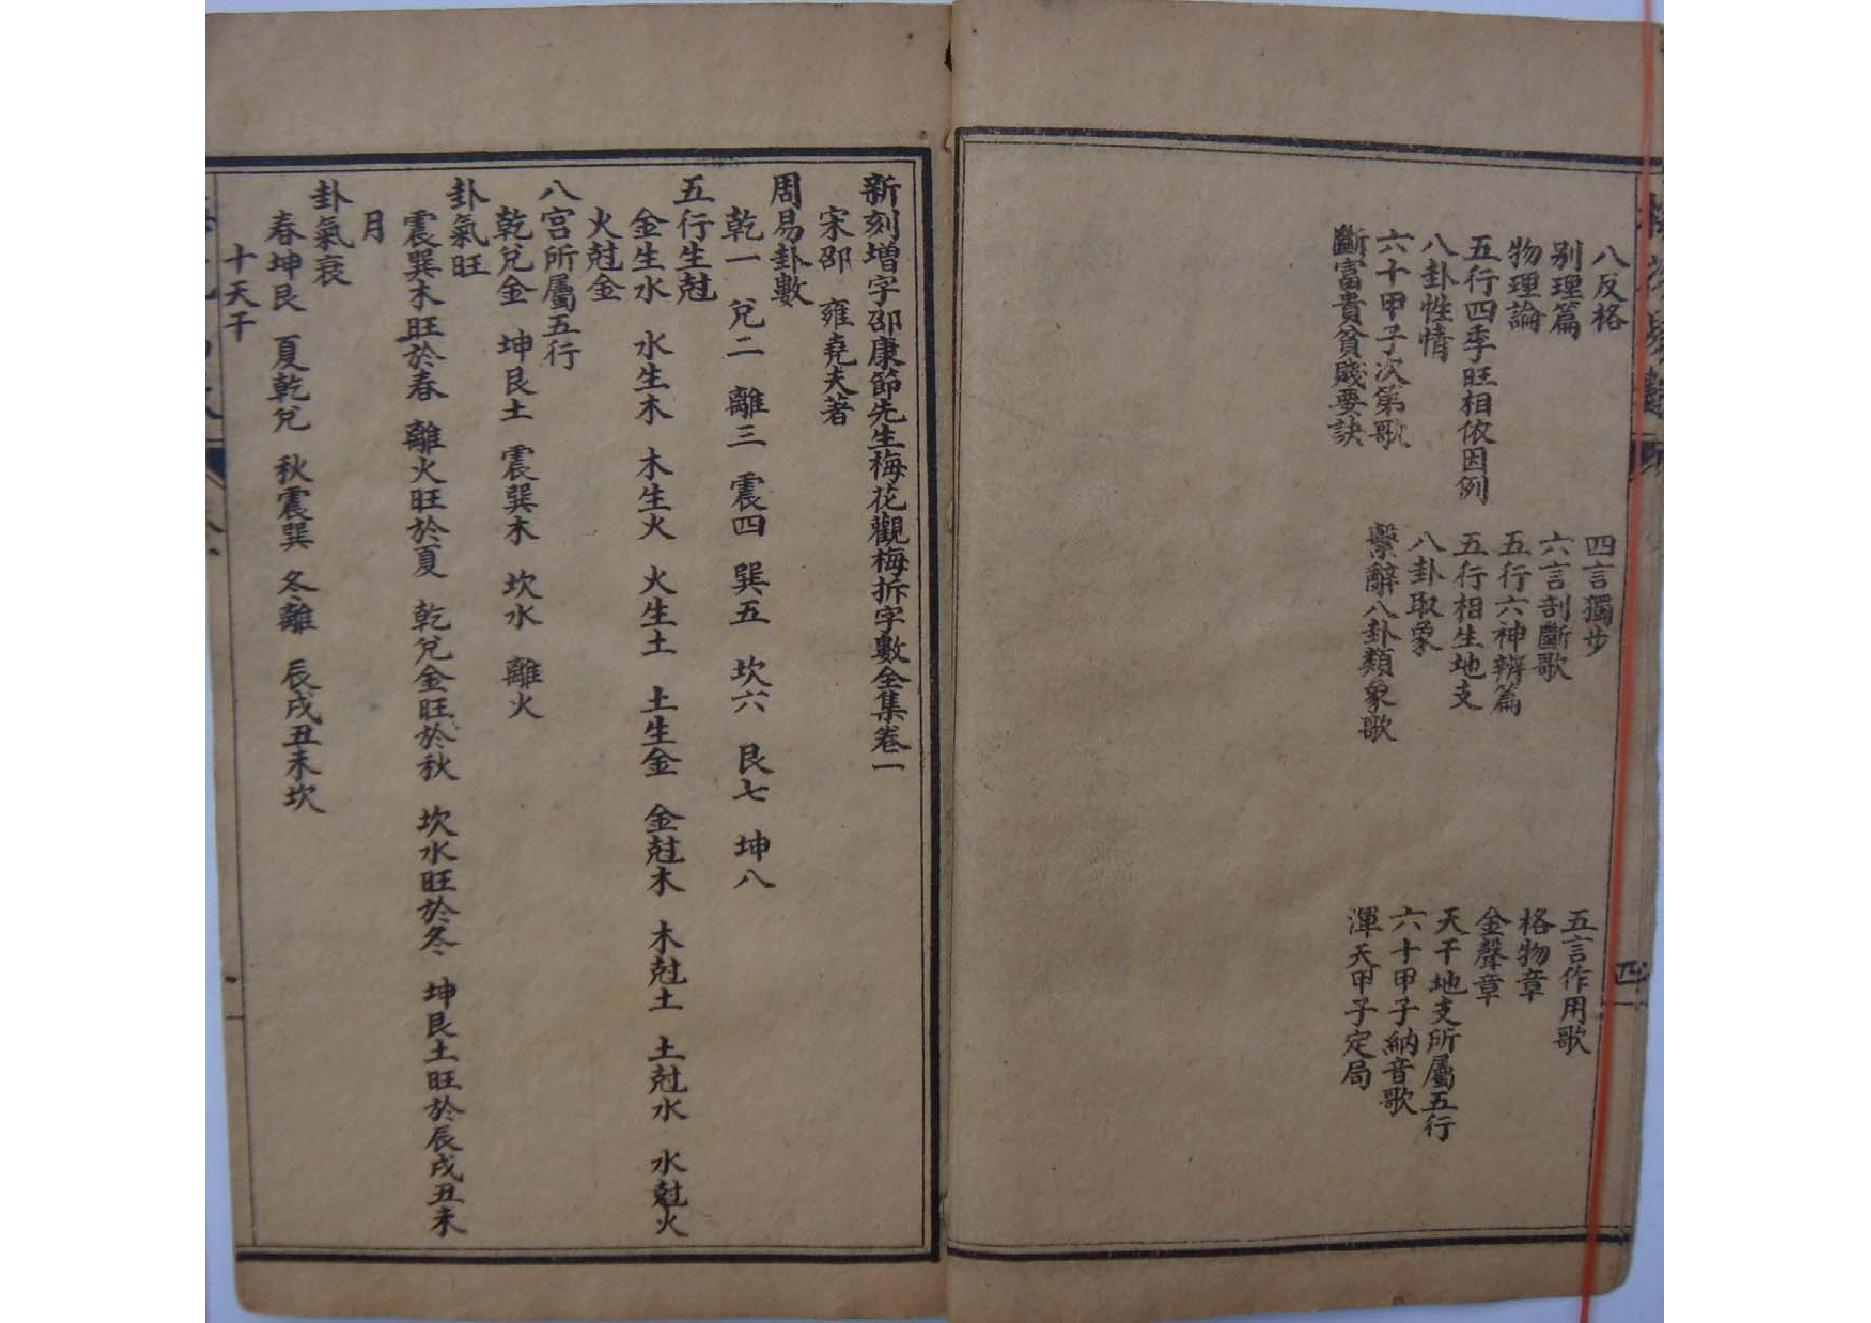 八反格 四言獨步 五言作用歌
别理篇 六言剖斷歌 格物章
物理論 五行六神辨篇 金聲章
五行四季旺相依因例 五行相生地支 天干地支所屬五行
八卦性情 八卦取象 六十甲子納音歌
六十甲子次第歌 繫辭八卦類象歌 渾天甲子定局
斷富貴貧賤要訣
四
新刻增字邵康節先生梅花觀梅拆字數全集卷一
宋邵 雍堯夫著
周易卦數
乾一 兌二 離三 震四 巽五 坎六 艮七 坤八
五行生尅
金生水 水生木 木生火 火生土 土生金 金尅木 木尅土 土尅水 水尅火
火尅金
八宮所屬五行
乾兌金 坤艮土 震巽木 坎水 離火
卦氣旺
震巽木旺於春 離火旺於夏 乾兌金旺於秋 坎水旺於冬 坤艮土旺於辰戌丑未
月
卦氣衰
春坤艮 夏乾兌 秋震巽 冬離 辰戌丑未坎
十天干